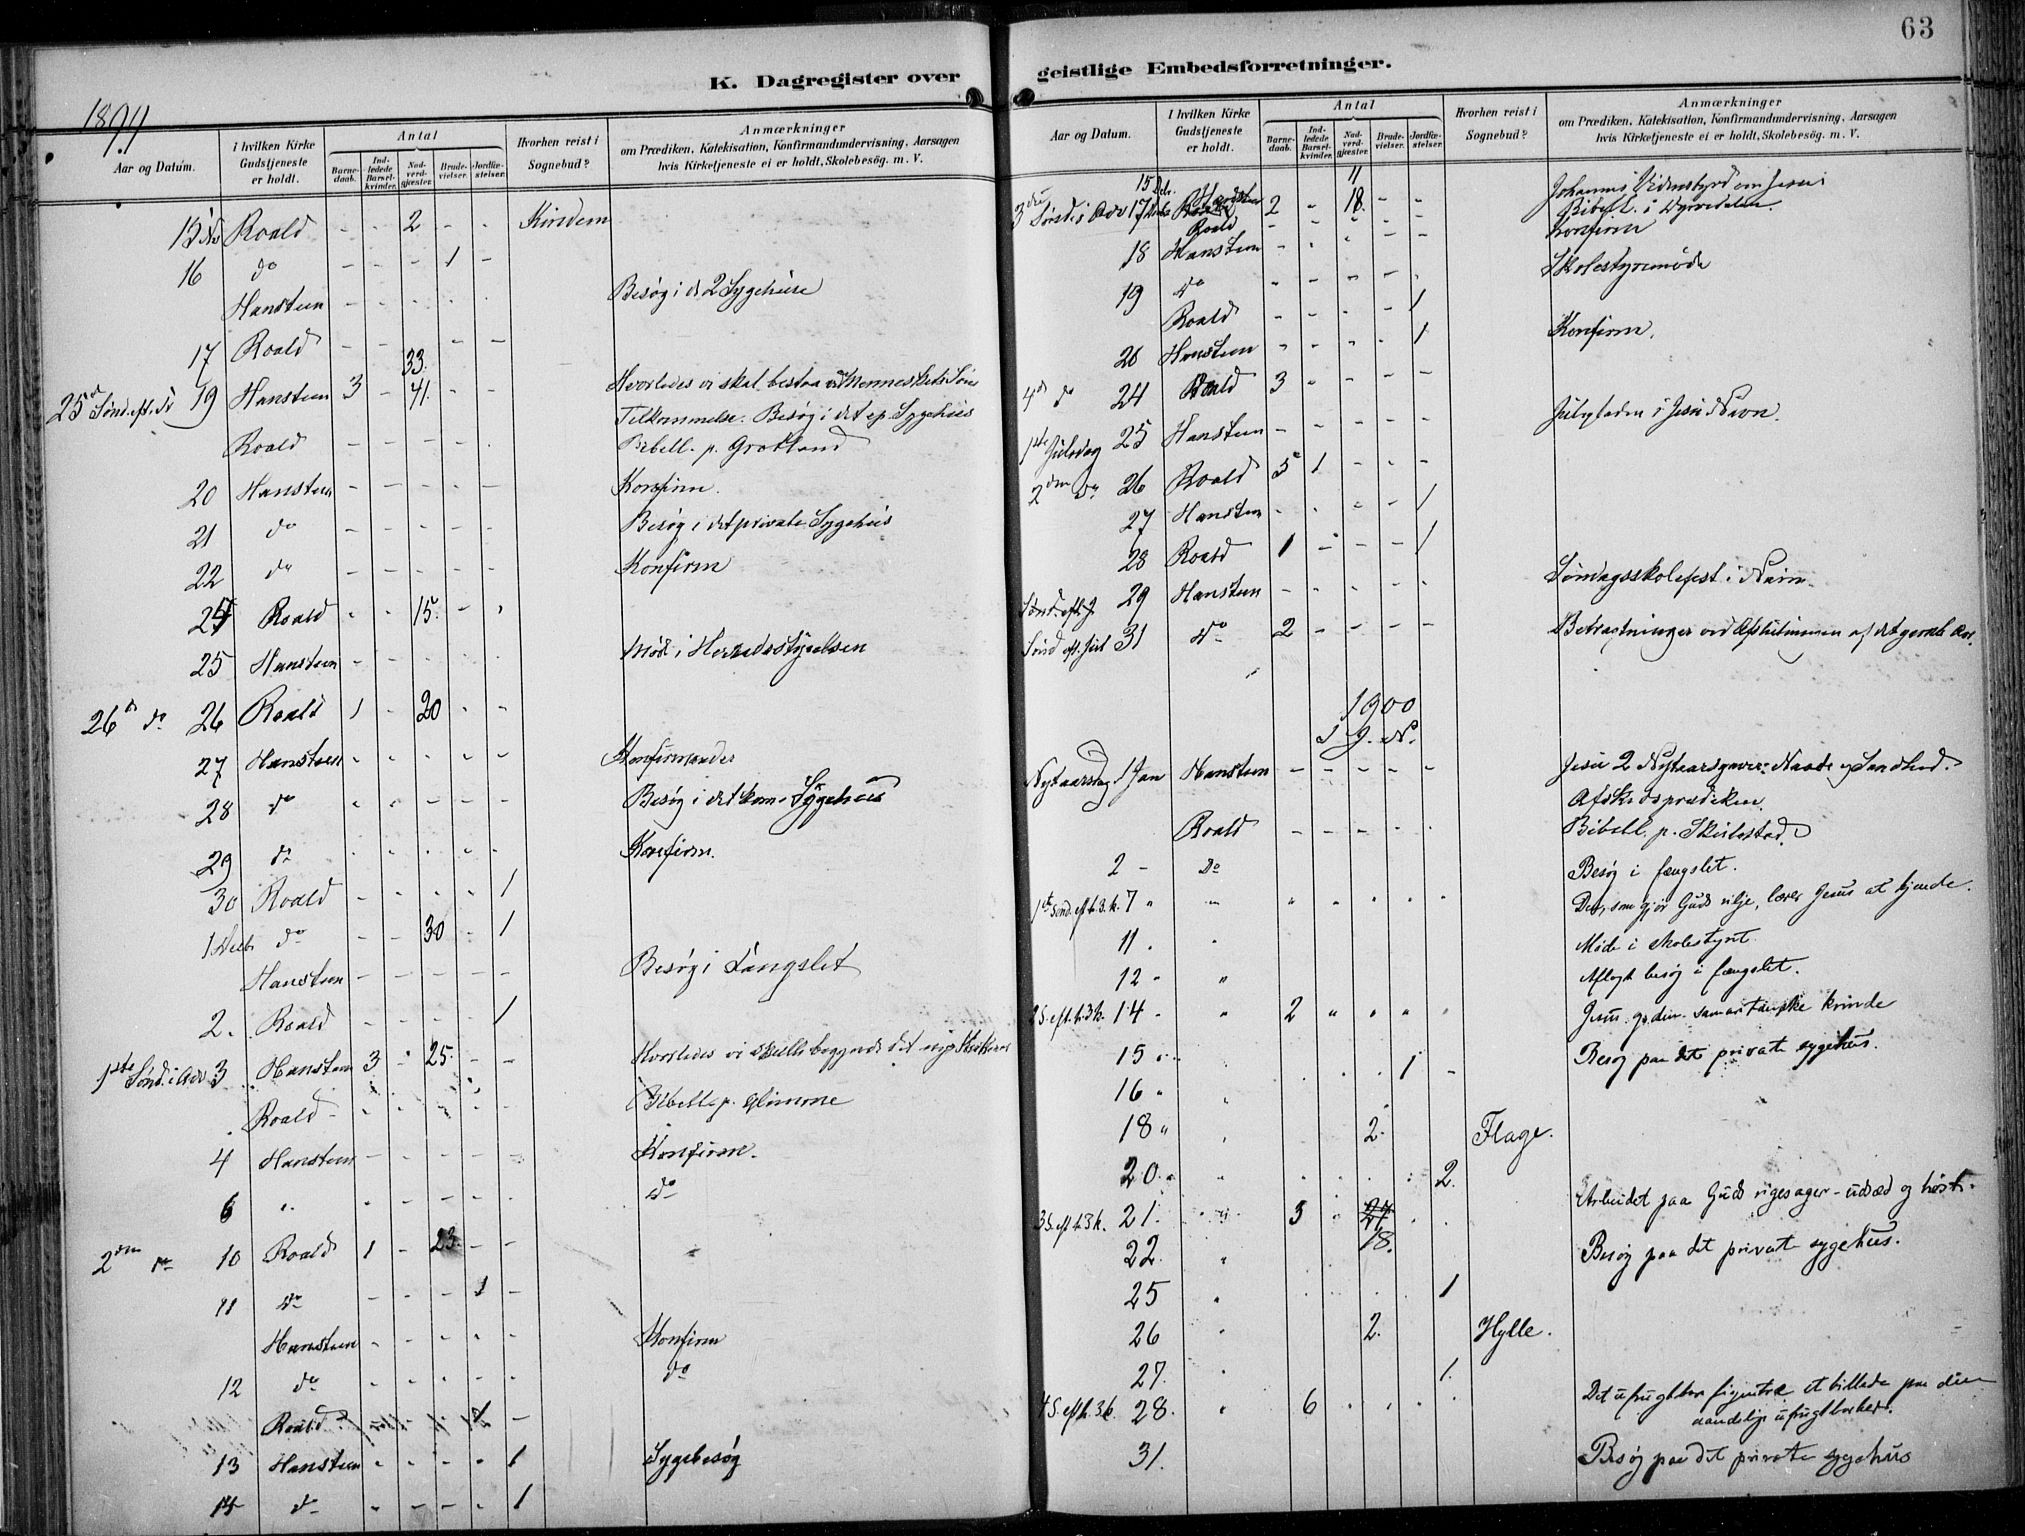 63
K. Dagregister over
geistlige Embedsforretninger.
1899
Aar og Datum.
i hvilken Kirke Gudstjeneste er holdt.
Antal
Barnedaab.
Indledede Barselkvinder.
Nadverdgjæster.
Brudevielser.
Jordfæstelser.
Hvorhen reist i Sognebud?
Anmærkninger
om Prædiken, Katekisation, Konfirmandundervisning, Aarsagen
hvis Kirketjeneste ei er holdt, Skolebesög. m. V.
15 Roald - - 2 - - Kindem
16 do - - - 1 -
Hansteen - - - - - Besøg i de 2 Sygehuse
17 Roald - - 33. - -
25d Sønd. eft. Tr 19 Hansteen 3 - 41. - - Hvorledes vi skal bestaa ved Menneskets Søns
Tilkommelse. Besøg i det ep. Sygehus
Roald - - - - - Bibell. p. Grotland
20 Hansteen - - - - - Konfirm.
21 do - - - - - Besøg i det private Sygehus
22 do - - - - - Konfirm
24 Roald - - 15. - -
25 Hansteen - - - - - Møde i Herredsstyrelsen
26d do 26 Roald 1 - 20 - -
27 Hansteen - - - - - Konfirmander
28 do - - - - - Besøg i det kom. Sygehus
29 do - - - - - Konfirm.
30 Roald - - - - 1
1 Decb. do - - 30 - 1
Hansteen - - - - - Besøg i Fængslet
2. Roald - - - - 1
1ste Sønd. i Adv 3 Hansteen 3 - 25. - - Hvorledes vi skulle begynde det nye Kirkeaar
Roald - - - - - Bibell. p. Glimme
4 Hansteen - - - - - Konfirm.
6 " - - - - - do
2den do 10 Roald 1 - 23. - -
11 do - - - 1 -
Hansteen - - - - - Konfirm
12 do - - - - - do
Roald
13 Hansteen - - - - 1 Sygebesøg
14 do - - - - 1
Aar og Datum.
I hvilken Kirke Gudstjeneste er holdt.
Antal
Barnedaab.
Indledede Barselkvinder.
Nadverdgjæster.
Brudevielser.
Jordfæstelser.
Hvorhen reist i Sognebud?
Anmærkninger
om Prædiken, Katekisation, Konfirmandundervisning, Aarsagen
hvis Kirketjeneste ei er holdt, Skolebesög. m. V.
15 Deb. 11
3die Sønd i Adv 17 Hansteen 2 - 18. - - Johannes' Vidnesbyrd om Jesus
Roald - - - - - Bibell. i Dyrvedalen.
18 Hansteen - - - - - Konfirm
19 do - - - - - Skolestyremøde
Roald - - - - 1
20 Hansteen - - - - 1 Konfirm.
4d do 24 Roald 3 - - - -
1ste Juledag 25 Hansteen - - - - - Juleglæden i Jesu Navn.
2den do 26 Roald 5 1 - - -
27 Hansteen - - - - 1
28 Roald 1 - - - 1
29 Hansteen - - - - - Søndagsskolefest i
Sønd. eft. Jul 31 do 2 - - - - Betragtninger ved Afslutningen af det gamle Aar.
1900
I J. N.
Nytaarsdag 1 Jan Hansteen - - - - - Jesu 2 Nytaarsgaver: Naade og Sandhed.
Afskedsprædiken.
Roald - - - - - Bibell. p. Skiilestad.
2 - do Besøg i fængslet.
1ste Sønd. eft. h. 3. k. 7 " Den, som gjør Guds vilje, lærer Jesus at kjende.
11. " Møde i skolestyret.
12 - " Aflagt besøg i fængslet.
2 S. eft. h. 3 k. 14 - " 2 " " " " Jesus og den samaritanske kvinde
15 . Besøg paa det private sygehus.
16 " 1 -
18 " 2. Flage.
20. 2.
3 S. eft. h. 3 k. 21. 3 18. Arbeidet paa Guds rigesager - udsæd og høst.
22. " Besøg paa det private sygehus.
25 " 1
26 " 2. Hylle.
27. " 1.
4 S. eft. h. 3 k. 28. " 6 Det ufrugtbare figentræ et billede paa den
aandelige ufrugtbarhed.
31. Besøg paa det private sygehus